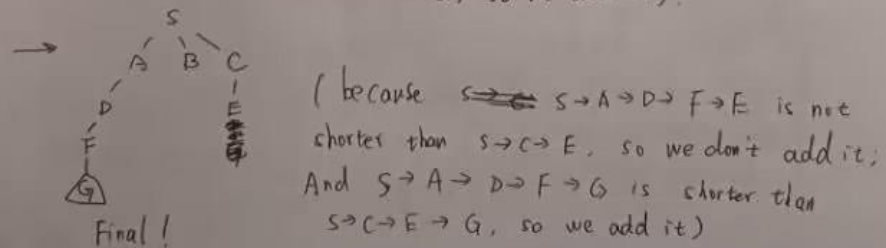 → S
A B C
D E
F
G
Final!
(because S→A→D→F→E is not
shorter than S→C→E, so we don't add it;
And S→A→D→F→G is shorter than
S→C→E→G, so we add it)